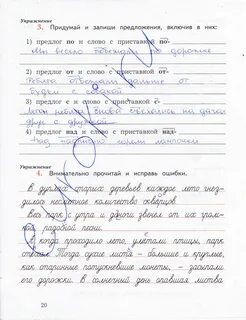 Упражнение
3. Придумай и запиши предложения, включив в них:
1) предлог по и слово с приставкой по-
Мы весело побежали по дорожке
2) предлог от и слово с приставкой от-
Ребята отбежали дальше от
будки с собакой
3) предлог с и слово с приставкой с-
друг с дружкой
4) предлог над и слово с приставкой над-
Над
Упражнение
4. Внимательно прочитай и исправь ошибки.
В дуплах старых деревьев каждое лето гнез-
дилось несметное количество скварцов.
Весь парк с утра и до ночи звенел от их гром-
кой радобной песни.
А когда проходило лето, улетали птицы, парк
стихал. Тогда сухие листя - большие и круглые,
как старинные потускневшие монеты, - засыпали
его дорожки. В солнечный день опавшая листва
20